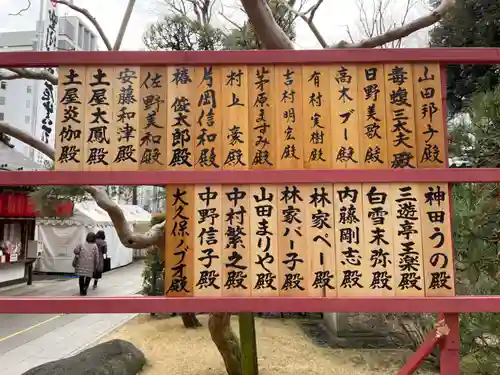 山田邦子殿
毒蝮三太夫殿
日野美歌殿
高木ブー殿
有村実樹殿
吉村明宏殿
茅原ますみ殿
村上豪殿
片岡信和殿
椿俊太郎殿
佐野和真殿
安藤和津殿
土屋太鳳殿
土屋炎伽殿
神田うの殿
三遊亭王楽殿
白雪未弥殿
内藤剛志殿
林家ペー殿
林家パー子殿
山田まりや殿
中村繁之殿
中野信子殿
大久保ノブオ殿